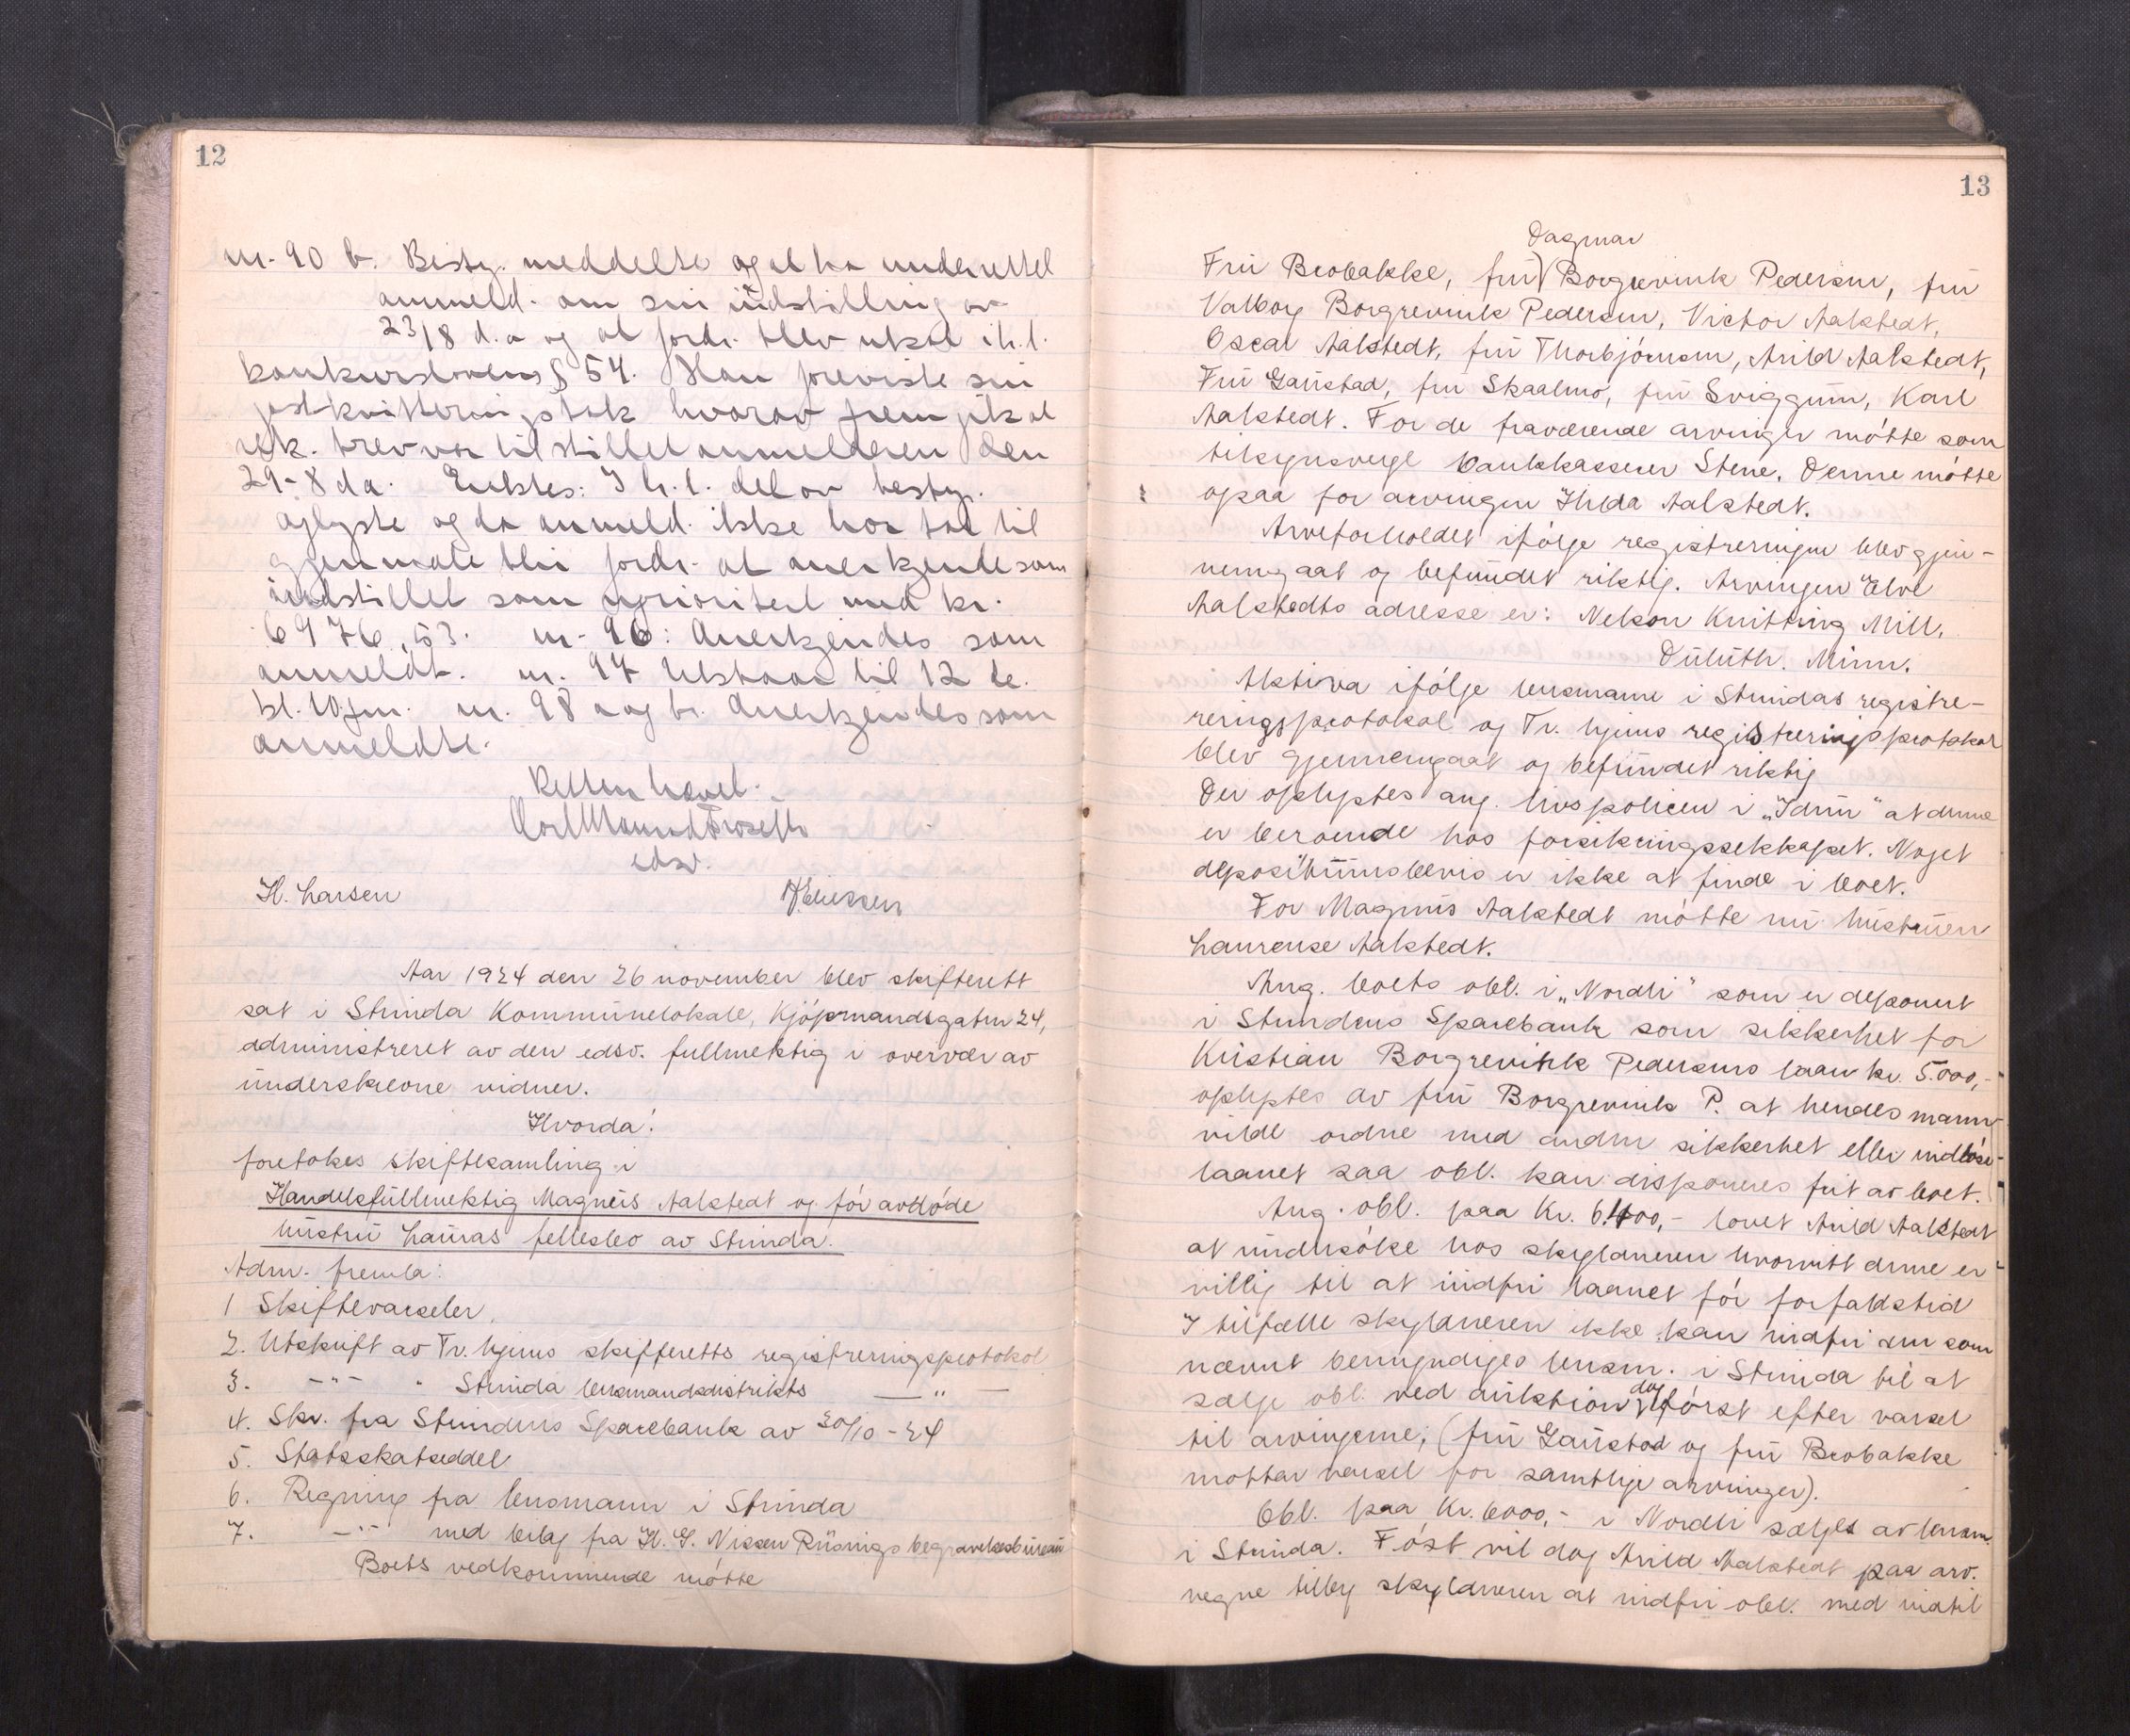 12
nr. 90 b. Besty. meddelte og at ha underrettet
anmeld. om sin indstilling av
23/8 d.a og at fordr. blev utsat ih.t.
konkurslovens § 54. Han foreviste sin
postkvitteringsbok hvorav fremgik at
rek. brev var tilstillet anmelderen den
29-8 da. Eraktes: I h.t. det av besty.
oplyste og da anmeld. ikke har tat til
gjenmæle blir fordr. at anerkjende som
indstillet som uprioritert med kr.
6976,53. nr. 96: Anerkjendes som
anmeldt. nr. 97 Utstaar til 12 de.
kl. 10 fm. nr. 98 a og b. Anerkjendes som
anmeldte.
Retten hævet.
edsv.
H. Larsen
Aar 1924 den 26 november blev skifterett
sat i Strinda Kommunelokale, Kjøpmandsgaten 24,
administreret av den edsv. fullmektig i overvær av
underskrevne vidner.
Hvorda:
foretokes skiftesamling i
Handelsfullmektig Magnus Aalstedt og før avdøde
hustru Lauras fellesbo av Strinda.
Adm. fremla:
1 Skiftevarseler.
2. Utskrift av Tr.hjems skifteretts registreringsprotokol
3. -"- " Strinda lensmandsdistrikts —"—
4. Skr. fra Strindens Sparebank av 30/10 - 24
5. Statsskatseddel
6. Regning fra lensmann i Strinda
7. -"- med bilag fra H. G. Nissen Rüsnigs begravelsesbureau
Boets vedkommende møtte
13
Dagmar
Fru Brobakke, fru Borgrevink Pedersen, fru
Valborg Borgrevink Pedersen, Victor Aalstedt,
Oscar Aalstedt, fru Thorbjørnsen, Arild Aalstedt,
Fru Gaustad, fru Skaalmo, fru Sviggum, Karl
Aalstedt. For de fraværende arvinger møtte som
tilsynsverge bankkasserer Stene. Denne møtte
ogsaa for arvingen Hilda Aalstedt.
Arveforholdet ifølge registreringen blev gjen-
nemgaat og befundet riktig. Arvingen Elve
Aalstedts adresse er: Nelson Knitting Mill,
Duluth. Minn.
Aktiva ifølge lensmann i Strindas registre-
reringsprotokol og Tr. hjems registreringsprotokol
blev gjennemgaat og befundet riktig
Der oplystes ang. livspolicen i „Idun" at denne
er beroende hos forsikringsselskapet. Noget
depositumsbevis er ikke at finde i boet.
For Magnus Aalstedt møtte nu hustruen
Laurense Aalstedt.
Ang. boets obl. i „Nordli" som er deponert
i Strindens Sparebank som sikkerhet for
Kristian Borgrevink Pedersens laan kr. 5.000,-
oplystes av fru Borgrevink P. at hendes mann
vilde ordne med anden sikkerhet eller indløse
laanet saa obl. kan disponeres frit av boet.
Ang. obl. paa Kr. 6.400,- lovet Arild Aalstedt
at undersøke hos skyldneren hvorvitt denne er
villig til at indfri laanet før forfaldstid
I tilfælle skyldneren ikke kan indfri den som
nævnt bemyndiges lensm. i Strinda til at
sælge obl. ved auktion dog først efter varsel
til arvingerne; (fru Gaustad og fru Brobakke
mottar varsel for samtlige arvinger).
Obl. paa Kr. 6000,- i Nordli sælges av lensm.
i Strinda. Føst vil dog Arild Aalstedt paa arv.
vegne tilby skyldneren at indfri obl. med indtil